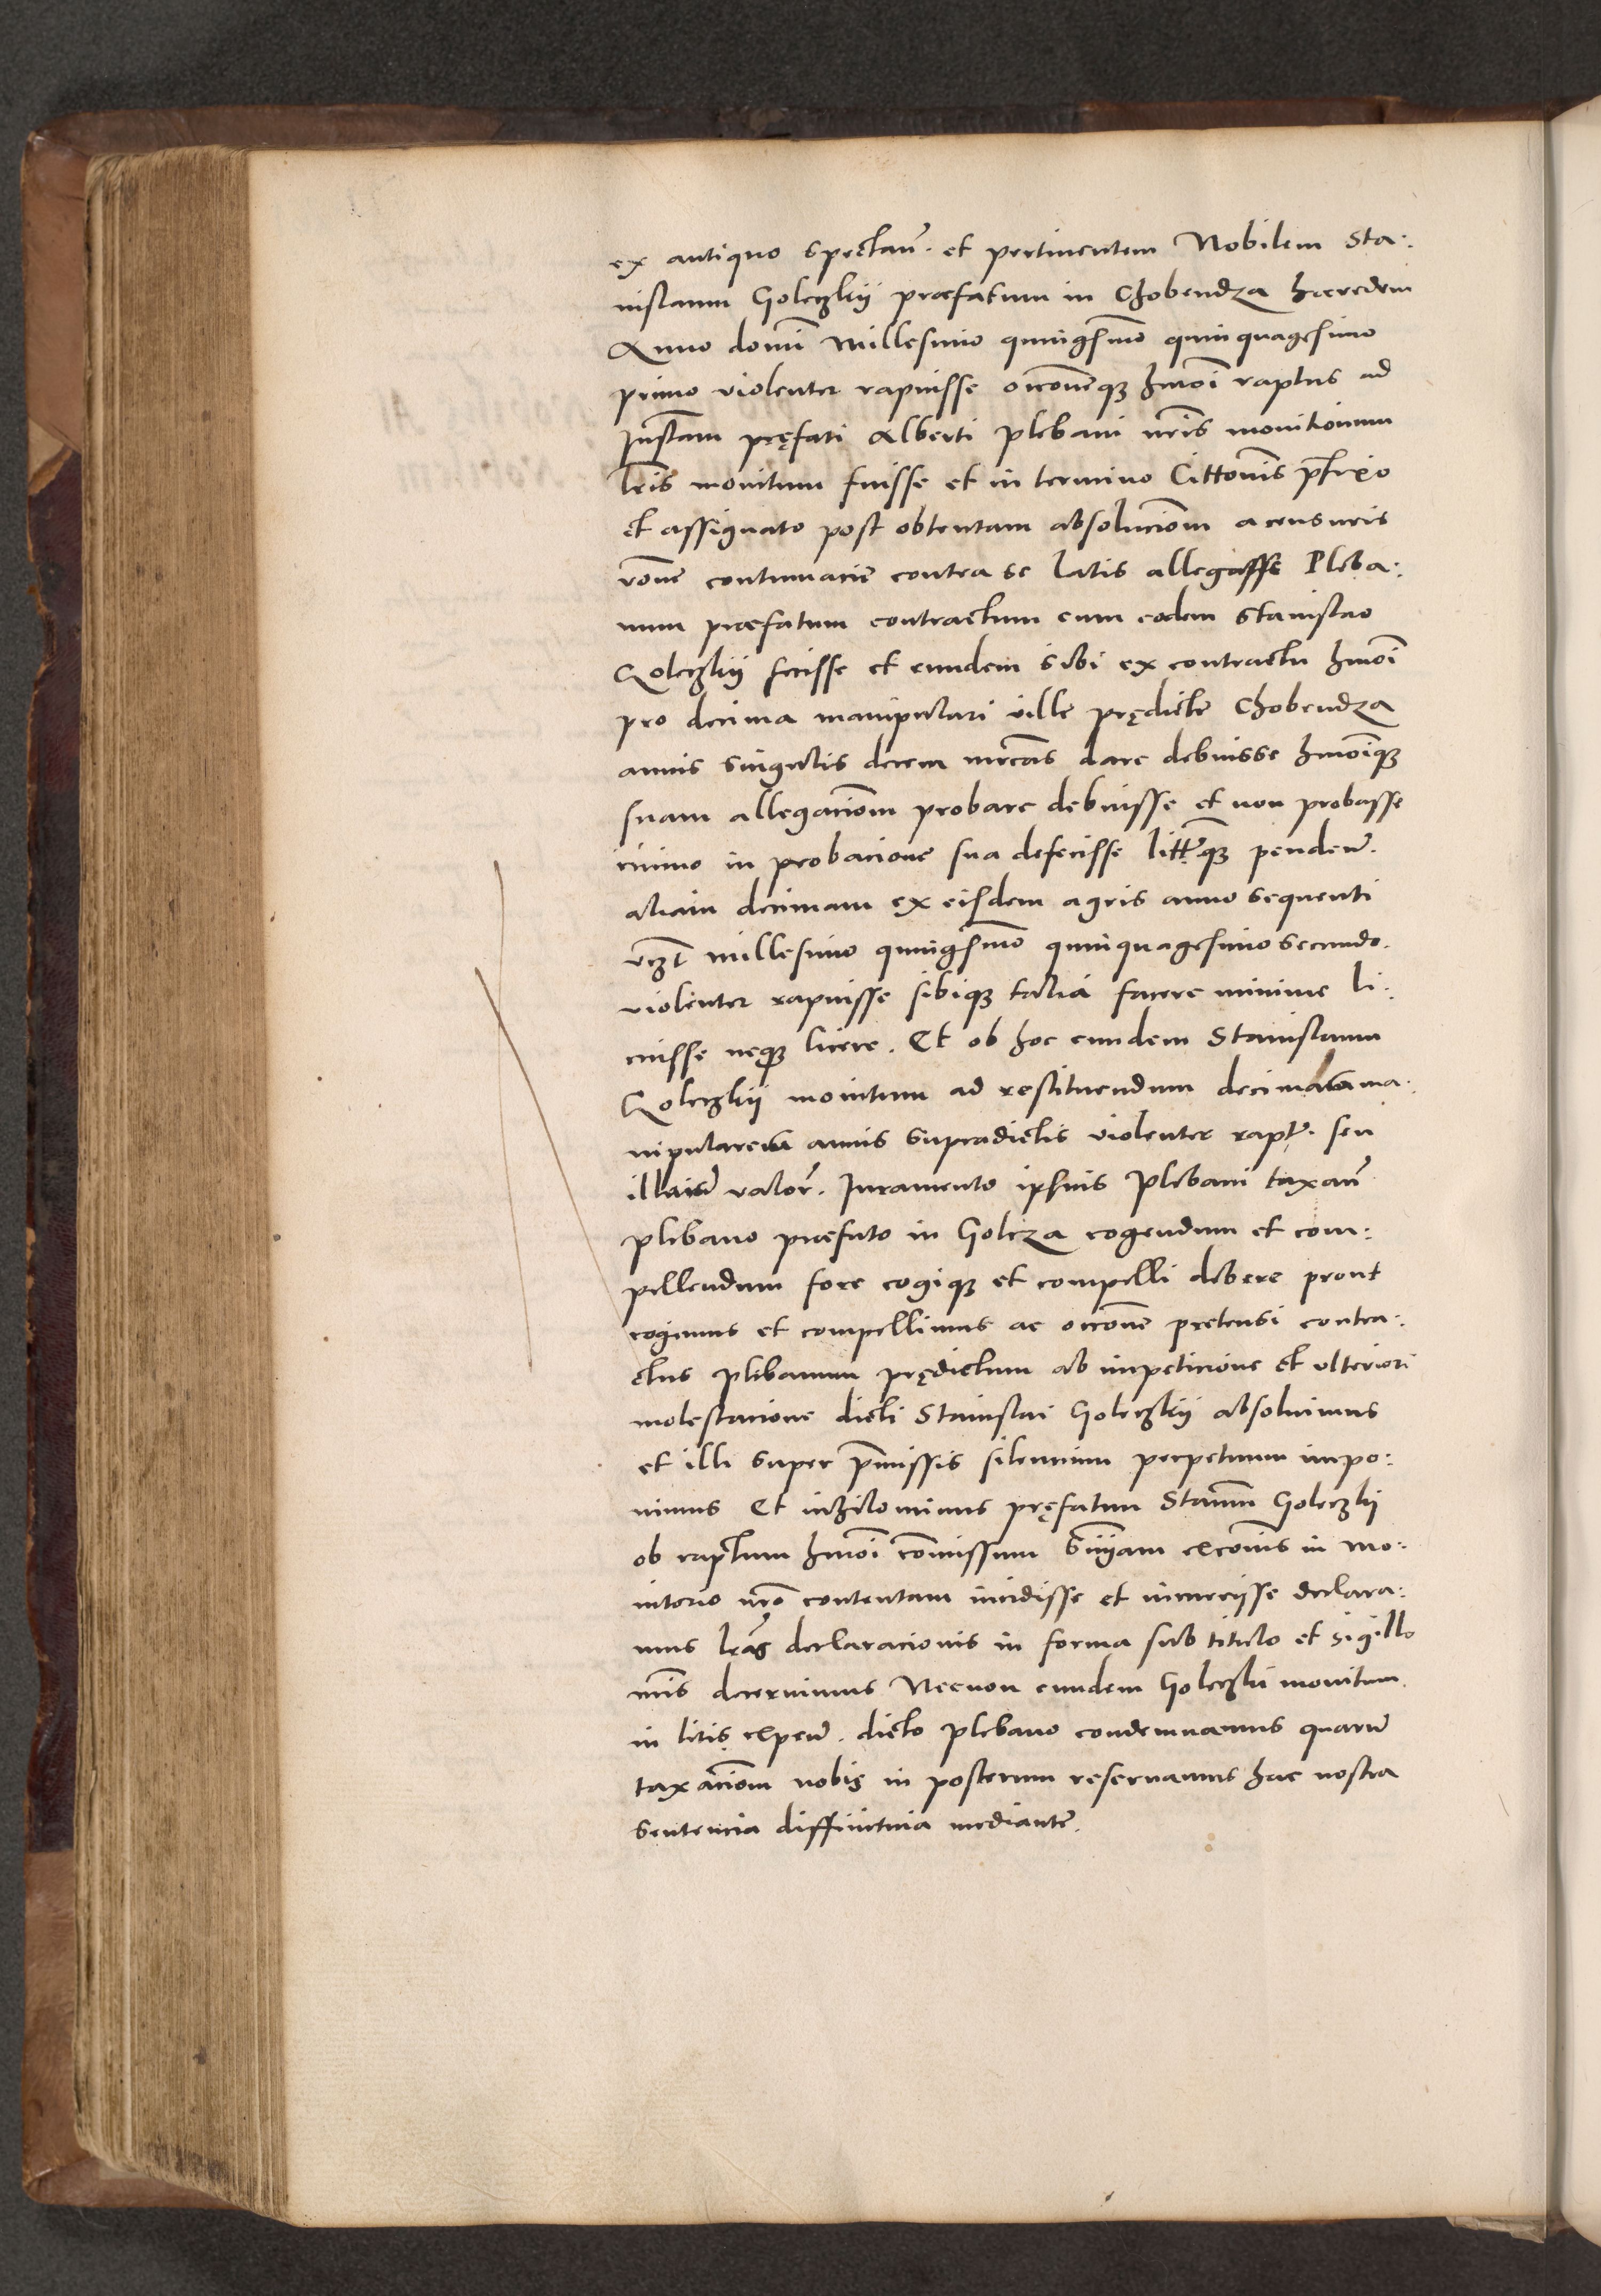 ex antiquo spectan̄. et pertinentem Nobilem Sta:
nislaum Goleczkij præfatum in Chobendza hæredem
Anno domī Millesimo quingesīmo quinquagesimo
primo violenter rapuisse occōneqꝫ hmōi raptus ad
Instān̄ pręfati Alberti plebani nr̄is monitionum
lr̄is monitum fuisse et in termino Cittōnis p̄fixo
et assignato post obtentam absolucionī a censuris
rōne contumacie contra se latis allegasse Pleba:
num præfatum contractum cum eodem Stanislao
Goleczkij fecisse et eundem sibi ex contractu hmōi
pro decima manipulari ville prędicte Chobendza
annis singulis decem mr̄cas dare debuisse hmōiqꝫ
suam allegacionī probare debuisse et non probasse
immo in probacione sua defecisse litteqꝫ penden̄.
aliam decimam ex eisdem agris anno sequenti
vꝫt millesimo quingesīmo quinquagesimo secundo.
violenter rapuisse sibiqꝫ talia facere minime li:
cuisse neqꝫ licere. Et ob hoc eundem Stanislaum
Goleczkij monitum ad restituendum decimam ma:
nipularem annis supradictis violenter rapt̄. seu
illarū valor̄. Iuramento ipsius Plebani taxan̄
plebano præfato in Golcza cogendum et com:
pellendum fore cogiqꝫ et compelli debere prout
cogimus et compellimus ac occōne pretensi contra:
ctus plebanum prędictum ab impeticione et ulteriori
molestacione dicti Stanislai Goleczkij absolvimus
et illi super p̄missis silencium perpetuum impo:
nimus Et inhilominus pręfatum Stan̄m Goleczkij
ob raptum hmōi cōmissum sn̄iam excōnis in mo:
nitorio nr̄o contentam incidisse et incurrisse declara:
mus lr̄as declaracionis in forma sub titulo et sigillo
nr̄is decernimus Necnon eundem Goleczkij monitum
in litis expen̄. dicto plebano condemnamus quarū
taxacionī nobis in posterum reservamus hac nostra
sentencia diffinitiva mediante.